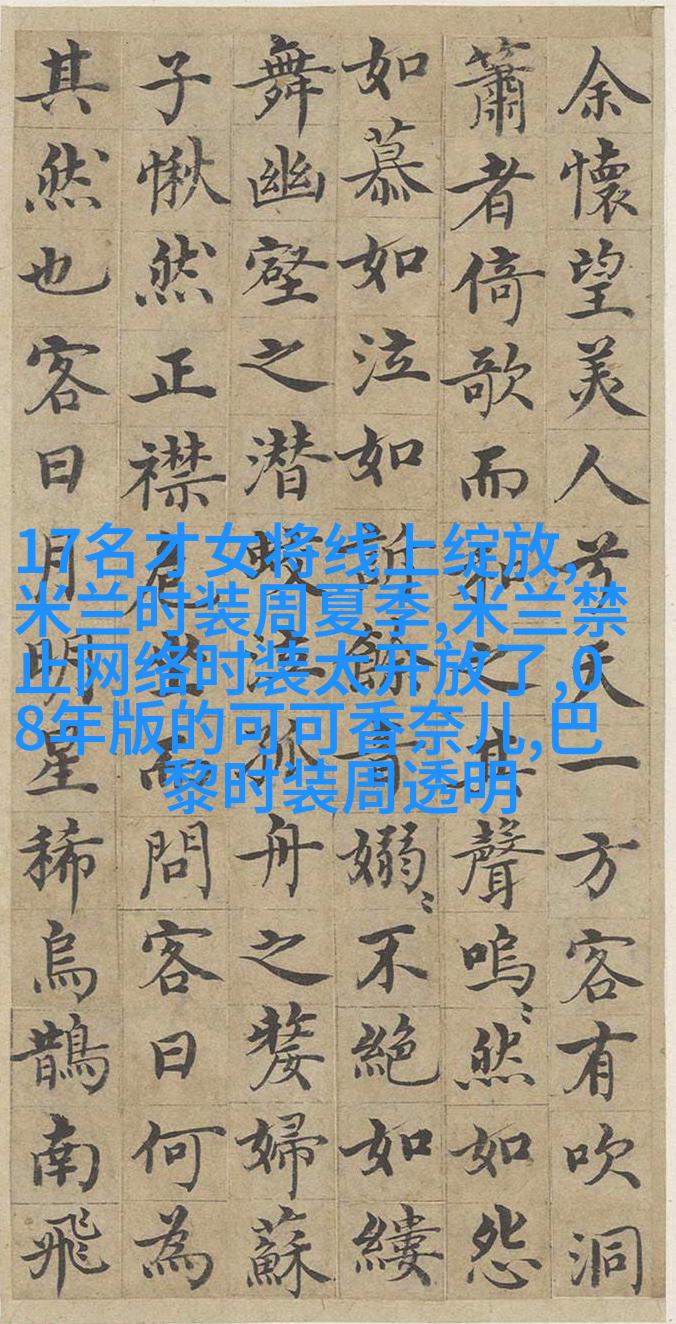 余懷望美人兮天一方客有吹洞
簫者倚歌而和之其聲嗚〻然如怨
如慕如泣如訴餘音嫋〻不絕如縷
舞幽壑之潛蛟泣孤舟之嫠婦蘇
子愀然正襟危坐而問客曰何為
其然也客曰月明星稀烏鵲南飛
17名才女将线上绽放,
米兰时装周夏季,米兰禁
止网络时装太开放了,0
8年版的可可香奈儿,巴
黎时装周透明